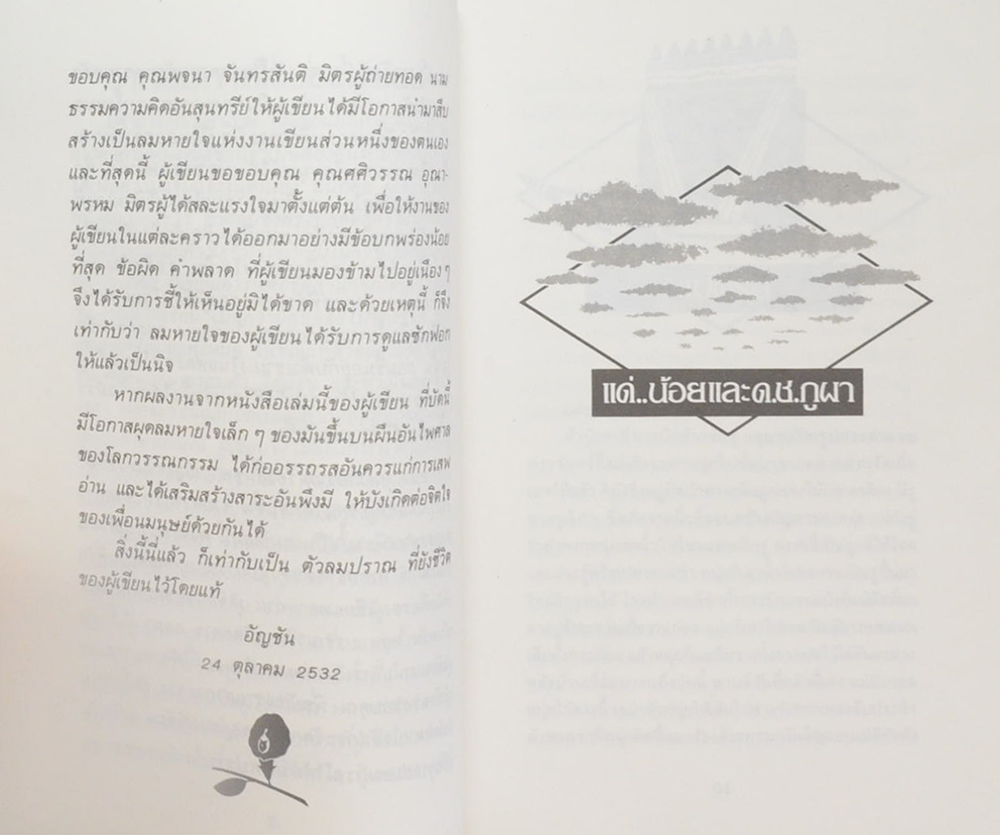 ขอบคุณ คุณพจนา จันทรสันติ มิตรผู้ถ่ายทอด นาม
ธรรมความคิดอันสุนทรีย์ให้ผู้เขียนได้มีโอกาสนำมาสืบ
สร้างเป็นลมหายใจแห่งงานเขียนส่วนหนึ่งของตนเอง
และที่สุดนี้ ผู้เขียนขอขอบคุณ คุณศศิวรรณ อุณา-
พรหม มิตรผู้ได้สละแรงใจมาตั้งแต่ต้น เพื่อให้งานของ
ผู้เขียนในแต่ละคราวได้ออกมาอย่างมีข้อบกพร่องน้อย
ที่สุด ข้อผิด คำพลาด ที่ผู้เขียนมองข้ามไปอยู่เนืองๆ
จึงได้รับการชี้ให้เห็นอยู่มิได้ขาด และด้วยเหตุนี้ ก็จึง
เท่ากับว่า ลมหายใจของผู้เขียนได้รับการดูแลซักฟอก
ให้แล้วเป็นนิจ
หากผลงานจากหนังสือเล่มนี้ของผู้เขียน ที่บัดนี้
มีโอกาสผุดลมหายใจเล็กๆ ของมันขึ้นบนผืนอันไพศาล
ของโลกวรรณกรรม ได้ก่ออรรถรสอันควรแก่การเสพ
อ่าน และได้เสริมสร้างสาระอันพึงมี ให้บังเกิดต่อจิตใจ
ของเพื่อนมนุษย์ด้วยกันได้
สิ่งนี้นี่แล้ว ก็เท่ากับเป็น ตัวลมปราณ ที่ยังชีวิต
ของผู้เขียนไว้โดยแท้
อัญชัน
24 ตุลาคม 2532
แด่..น้อยและด.ช.ภูผา